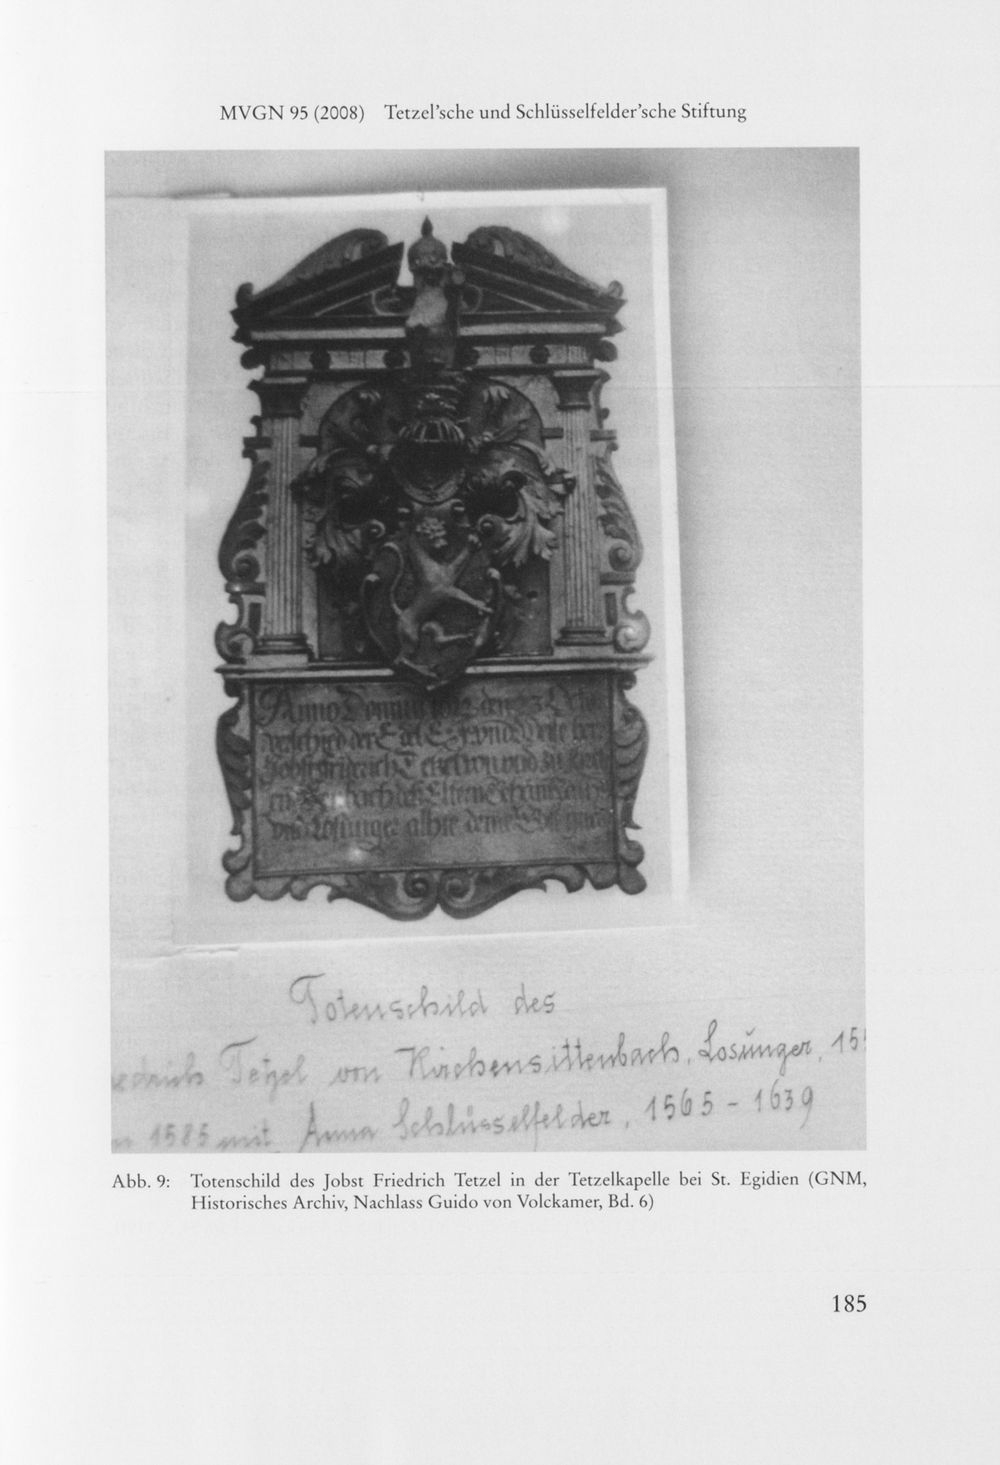 MVGN 95 (2008) Tetzel'sche und Schlüsselfelder'sche Stiftung
Anno Domini 1612 den 23
verschied der
Jobst Friderich Tetzel von und zu
und Losunger alhie deme Gott
Totenschild des
edrich Tetzel von Kirchensittenbach, Losunger, 15
1585 mit Anna Schlüsselfelder, 1565 - 1639
Abb. 9: Totenschild des Jobst Friedrich Tetzel in der Tetzelkapelle bei St. Egidien (GNM,
Historisches Archiv, Nachlass Guido von Volckamer, Bd. 6)
185